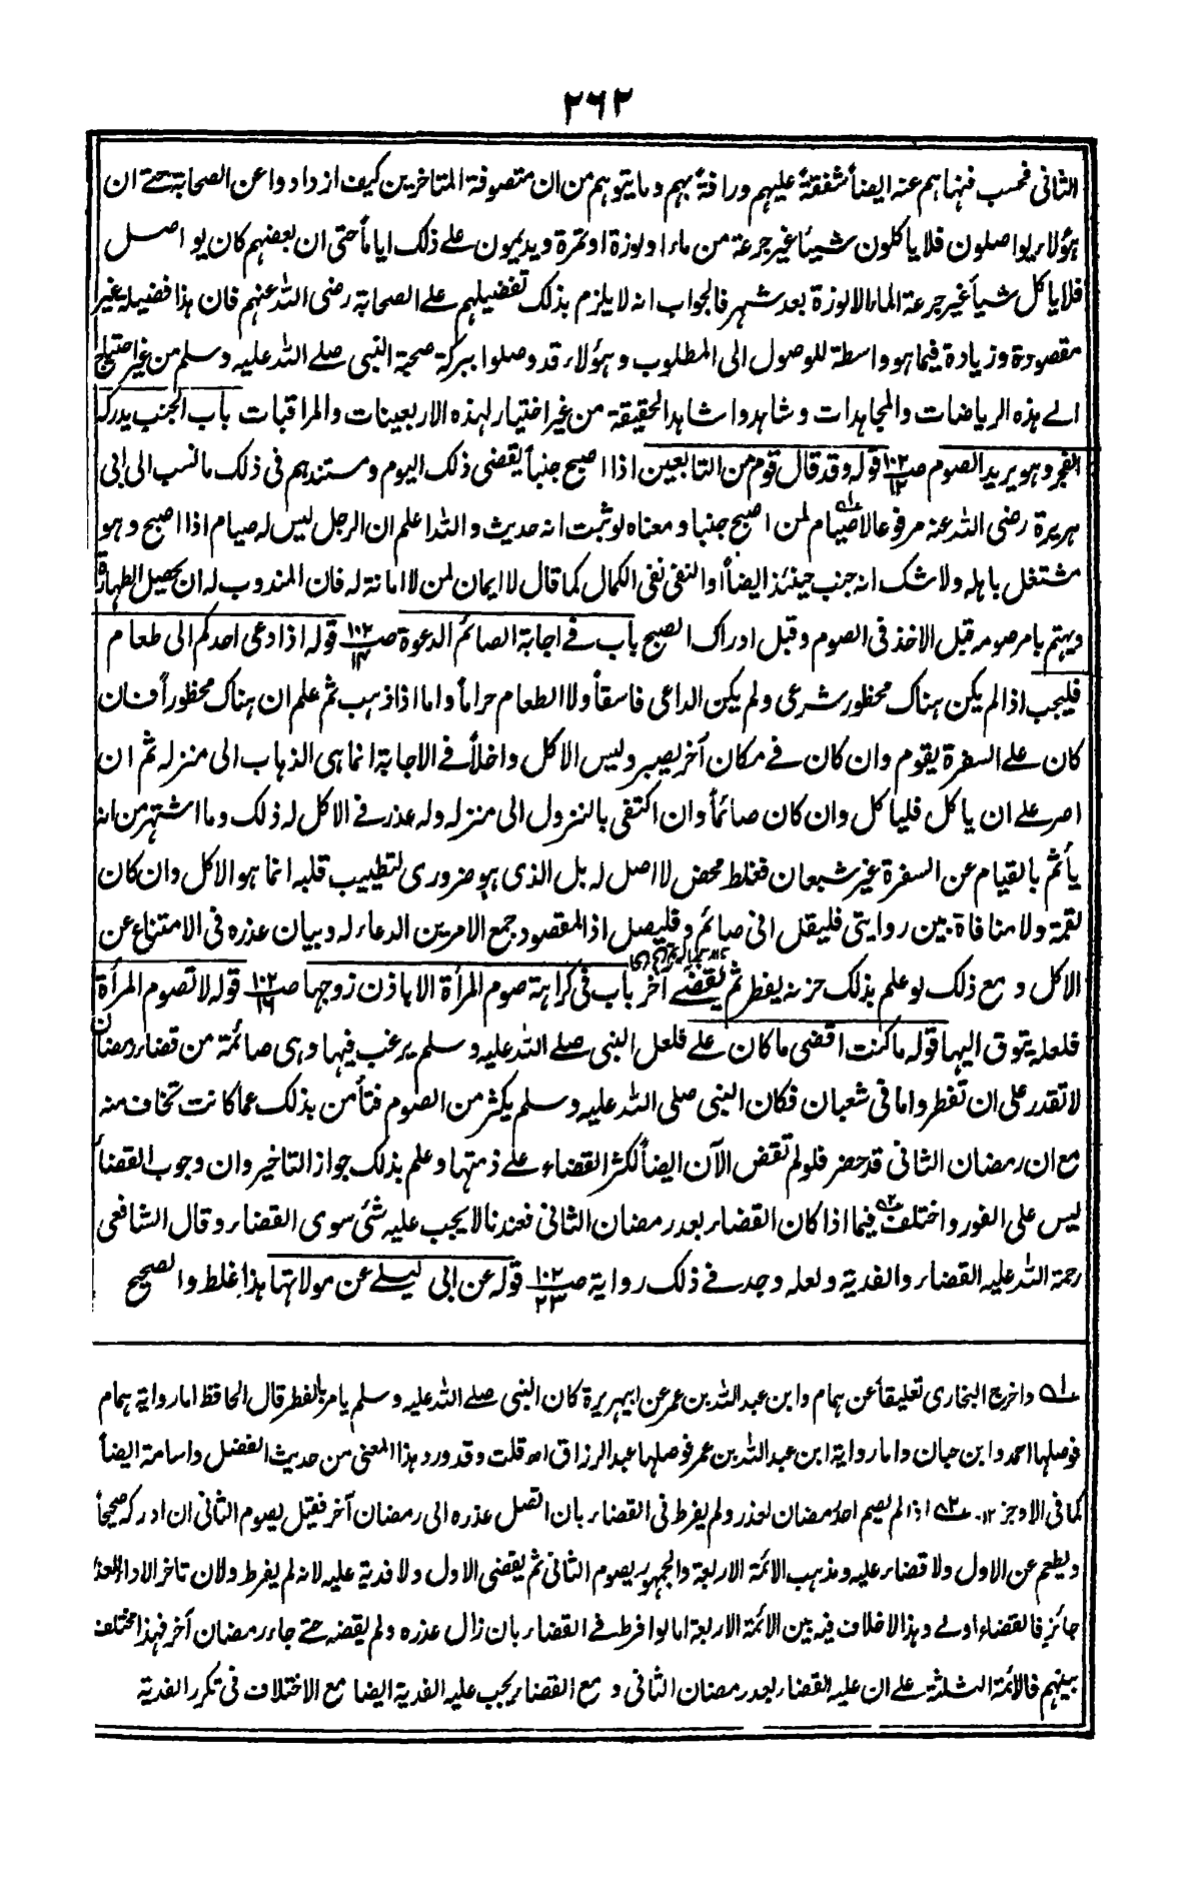 ٢٦٢
الثانى فحسب فنهاهم عنه ايضاً شفقةً عليهم ورافةً بهم وما يتوهم من ان متصوفة المتاخرين كيف ازدادوا عن الصحابة حتے ان
هؤلاء يواصلون فلا ياكلون شيئا غير جرعة من ماء او لوزة او تمرة ويديمون علے ذلك اياماً حتى ان بعضهم كان يواصل
فلا ياكل شيأ غير جرعة الماء الا لوزة بعد شهر فالجواب انه لا يلزم بذلك تفضيلهم علے الصحابة رضى الله عنهم فان هذا فضيلة غير
مقصودة وزيادة فيما هو واسطة للوصول الى المطلوب وهؤلاء قد وصلوا ببركة صحبة النبى صلے الله عليه وسلم من غير احتياج
الے هذه الرياضات والمجاهدات وشاهدوا شاهد الحقيقة من غير اختيار لهذه الاربعينات والمراقبات باب الجنب يدركه
الفجر وهو يريد الصوم صـ١٠٢/١٢ قوله وقد قال قوم من التابعين اذا اصبح جنباً يقضى ذلك اليوم ومستندهم فى ذلك ما نسب الى ابى
هريرة رضى الله عنه مرفوعا لا صيام لمن اصبح جنبا ومعناه لو ثبت انه حديث والله اعلم ان الرجل ليس له صيام اذا اصبح وهو
مشتغل باهله ولا شك انه جنب حينئذ ايضاً او النفى نفى الكمال كما قال لا ايمان لمن لا امانة له فان المندوب له ان يحصيل الطهارة
ويهتم بامر صومه قبل الاخذ فى الصوم وقبل ادراك الصبح باب فے اجابة الصائم الدعوة صـ١٠٢/١٤ قوله اذا دعى احدكم الى طعام
فليجب اذا لم يكن هناك محظور شرعى ولم يكن الداعى فاسقاً ولا الطعام حراماً واما اذا ذهب ثم علم ان هناك محظوراً فان
كان علے السفرة يقوم وان كان فے مكان آخر يصبر وليس الاكل داخلاً فے الاجابة انما هى الذهاب الى منزله ثم ان
اصر علے ان ياكل فلياكل وان كان صائماً وان اكتفى بالنزول الى منزله وله عذر فے الاكل له ذلك وما اشتهر من انه
يأثم بالقيام عن السفرة غير شبعان فغلط محض لا اصل له بل الذى هو ضرورى لتطييب قلبه انما هو الاكل وان كان
لقمة ولا منافاة بين روايتى فليقل انى صائم وفليصل اذ المقصود جمع الامرين الدعاء له وبيان عذره فى الامتناع عن
الاكل و مع ذلك لو علم بذلك حزنه يفطر ثم يقضے آخر باب فى كراهة صوم المرأة الا باذن زوجها صـ١٠٢/١٦ قوله لا تصوم المرأة
فلعله يتوق اليها قوله ما كنت اقضى ما كان علے فلعل النبى صلے الله عليه وسلم يرغب فيها وهى صائمة من قضاء رمضان
لا تقدر على ان تفطر واما فى شعبان فكان النبى صلى الله عليه وسلم يكثر من الصوم فتأمن بذلك عما كانت تخاف منه
مع ان رمضان الثانى قد حضر فلو لم تقض الآن ايضاً لكثر القضاء علے ذمتها وعلم بذلك جواز التاخير وان وجوب القضاء
ليس على الفور واختلف فيما اذا كان القضاء بعد رمضان الثانى فعندنا لا يجب عليه شئى سوى القضاء وقال الشافعى
رحمة الله عليه القضاء والفدية ولعله وجد فے ذلك رواية صـ١٠٢/٢٣ قوله عن ابى ليلے عن مولاتها هذا غلط والصحيح
؎١ واخرج البخارى تعليقاً عن همام وابن عبد الله بن عمر عن ابيهريرة كان النبى صلے الله عليه وسلم يامر بالفطر قال الحافظ اما رواية همام
فوصلها احمد وابن حبان واما رواية ابن عبد الله بن عمر فوصلها عبد الرزاق اھ قلت وقد ورد هذا المعنى من حديث الفضل واسامة ايضاً
كما فى الاوجز ١٢۔ ؎٢ اذا لم يصم احد رمضان لعذر ولم يفرط فى القضاء بان اتصل عذره الى رمضان آخر فقيل يصوم الثانى ان ادركه صحيحاً
ويطعم عن الاول ولا قضاء عليه ومذهب الائمة الاربعة والجمهور يصوم الثانى ثم يقضى الاول ولا فدية عليه لانه لم يفرط ولان تاخر الاداء لعذر
جائز فالقضاء اولے وهذا لا خلاف فيه بين الائمة الاربعة اما لو افرط فے القضاء بان زال عذره ولم يقضه حتے جاء رمضان آخر فهذا مختلف
بينهم فالائمة الثلثة علے ان عليه القضاء بعد رمضان الثانى و مع القضاء يجب عليه الفدية ايضا مع الاختلاف فى تكرر الفدية